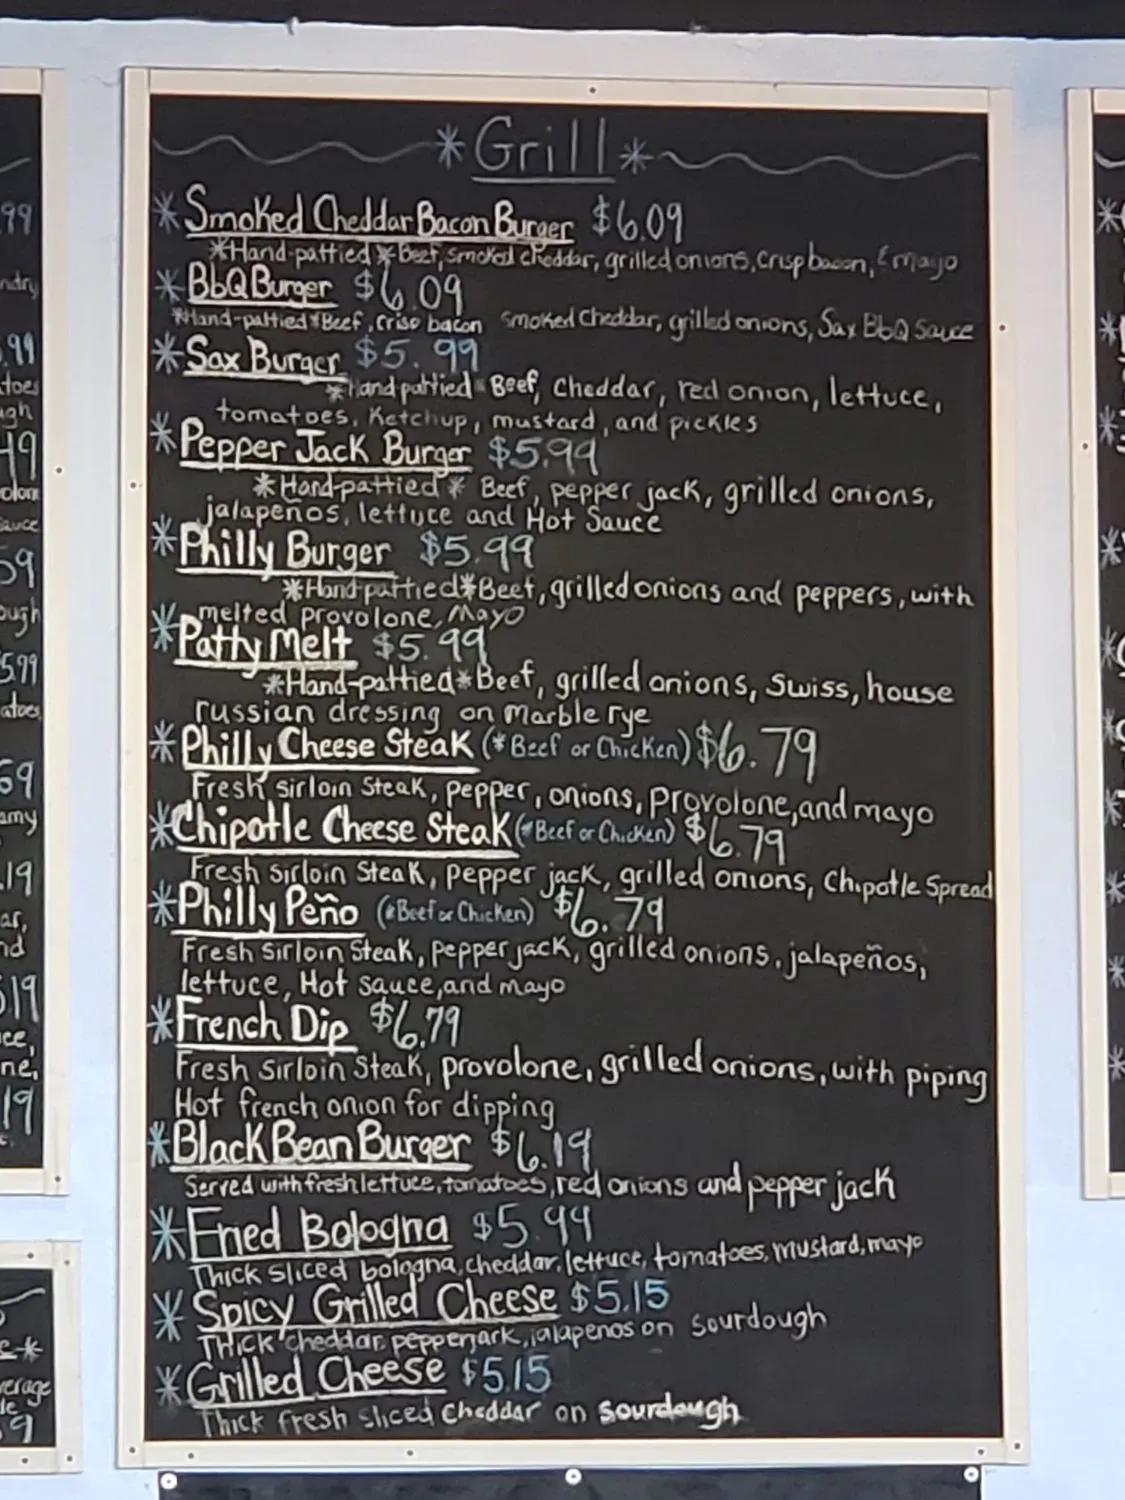 *Grill*
*Smoked Cheddar Bacon Burger $6.09
*Hand-pattied*Beef, smoked cheddar, grilled onions, crisp bacon, & mayo
*BbQ Burger $6.09
*Hand-pattied*Beef, crisp bacon smoked cheddar, grilled onions, Sax BbQ Sauce
*Sax Burger $5.99
*Hand pattied* Beef, Cheddar, red onion, lettuce,
tomatoes, Ketchup, mustard, and pickles
*Pepper Jack Burger $5.99
*Hand-pattied* Beef, pepper jack, grilled onions,
jalapeños, lettuce and Hot Sauce
*Philly Burger $5.99
*Hand-pattied*Beef, grilled onions and peppers, with
melted provolone, Mayo
*Patty Melt $5.99
*Hand-pattied*Beef, grilled onions, Swiss, house
russian dressing on Marble rye
*Philly Cheese Steak (*Beef or Chicken) $6.79
Fresh sirloin Steak, pepper, onions, provolone, and mayo
*Chipotle Cheese Steak (*Beef or Chicken) $6.79
Fresh Sirloin Steak, pepper jack, grilled onions, Chipotle Spread
*Philly Peño (*Beef or Chicken) $6.79
Fresh Sirloin Steak, pepper jack, grilled onions, jalapeños,
lettuce, Hot sauce, and mayo
*French Dip $6.79
Fresh Sirloin Steak, provolone, grilled onions, with piping
Hot french onion for dipping
*Black Bean Burger $6.19
Served with fresh lettuce, tomatoes, red onions and pepper jack
*Fried Bologna $5.99
Thick sliced bologna, cheddar, lettuce, tomatoes, mustard, mayo
*Spicy Grilled Cheese $5.15
Thick cheddar, pepperjark, jalapenos on sourdough
*Grilled Cheese $5.15
Thick fresh sliced cheddar on sourdough